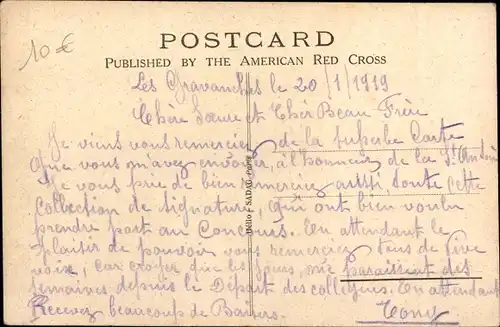 10 €
POSTCARD
PUBLISHED BY THE AMERICAN RED CROSS
Les Gravanches le 20/1/1919
Chère Sœur et Cher Beau Frère
Je viens vous remercier de la superbe Carte
que vous m'avez envoyer, à l'honneur de la St
Je vous prie de bien remercier aussi, toute cette
Collection de signature, qui ont bien voulu
prendre part au Concours. En attendant le
plaisir de pouvoir vous remercier tous de vive
voix, car croyez que les jours, me paraissent des
semaines depuis le Départ des collègues. En attendant
Recevez beaucoup de Baisers.
Tony
Hélio SADAG